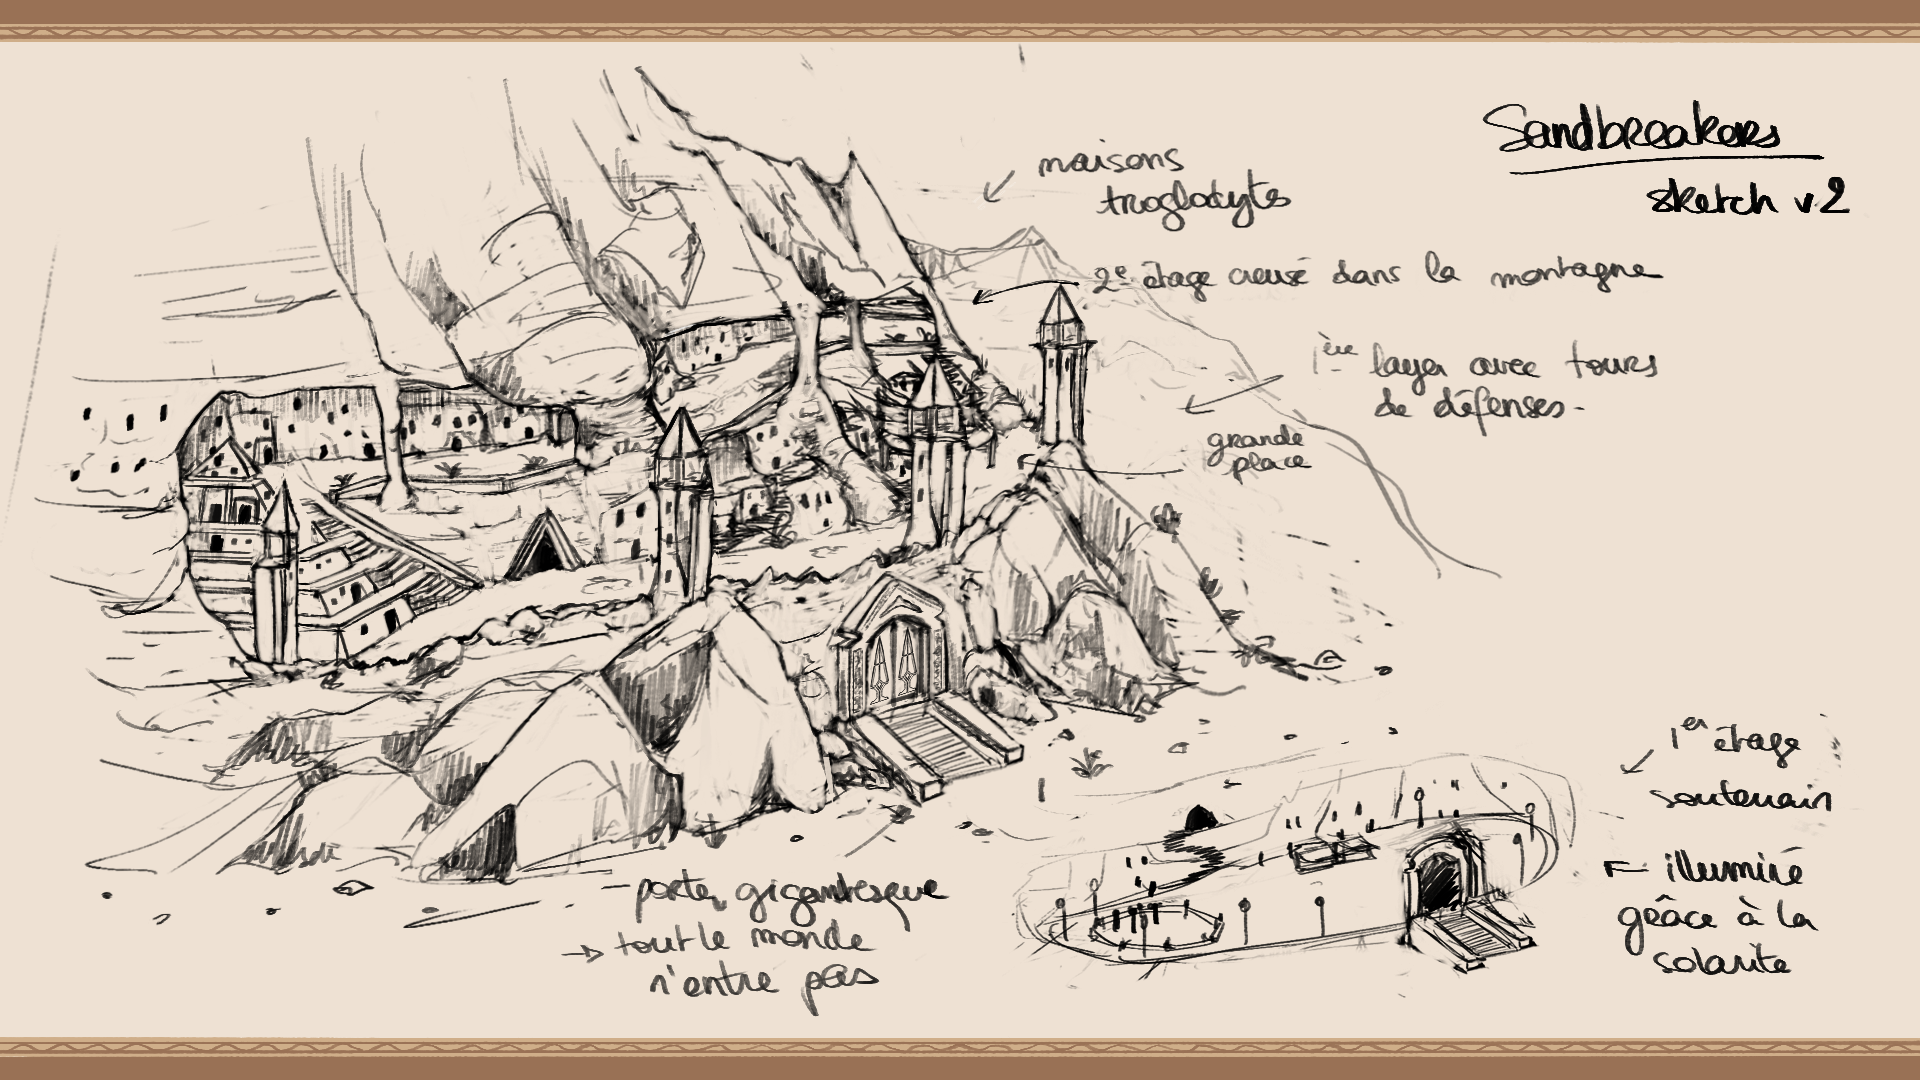 Sandbreakers
sketch v2
maisons
troglodytes
2e étage creusé dans la montagne
1ère layer avec tours
de défenses.
grande
place
1er étage
souterrain
illuminé
grâce à la
solarite
porte gigantesque
→ tout le monde
n'entre pas